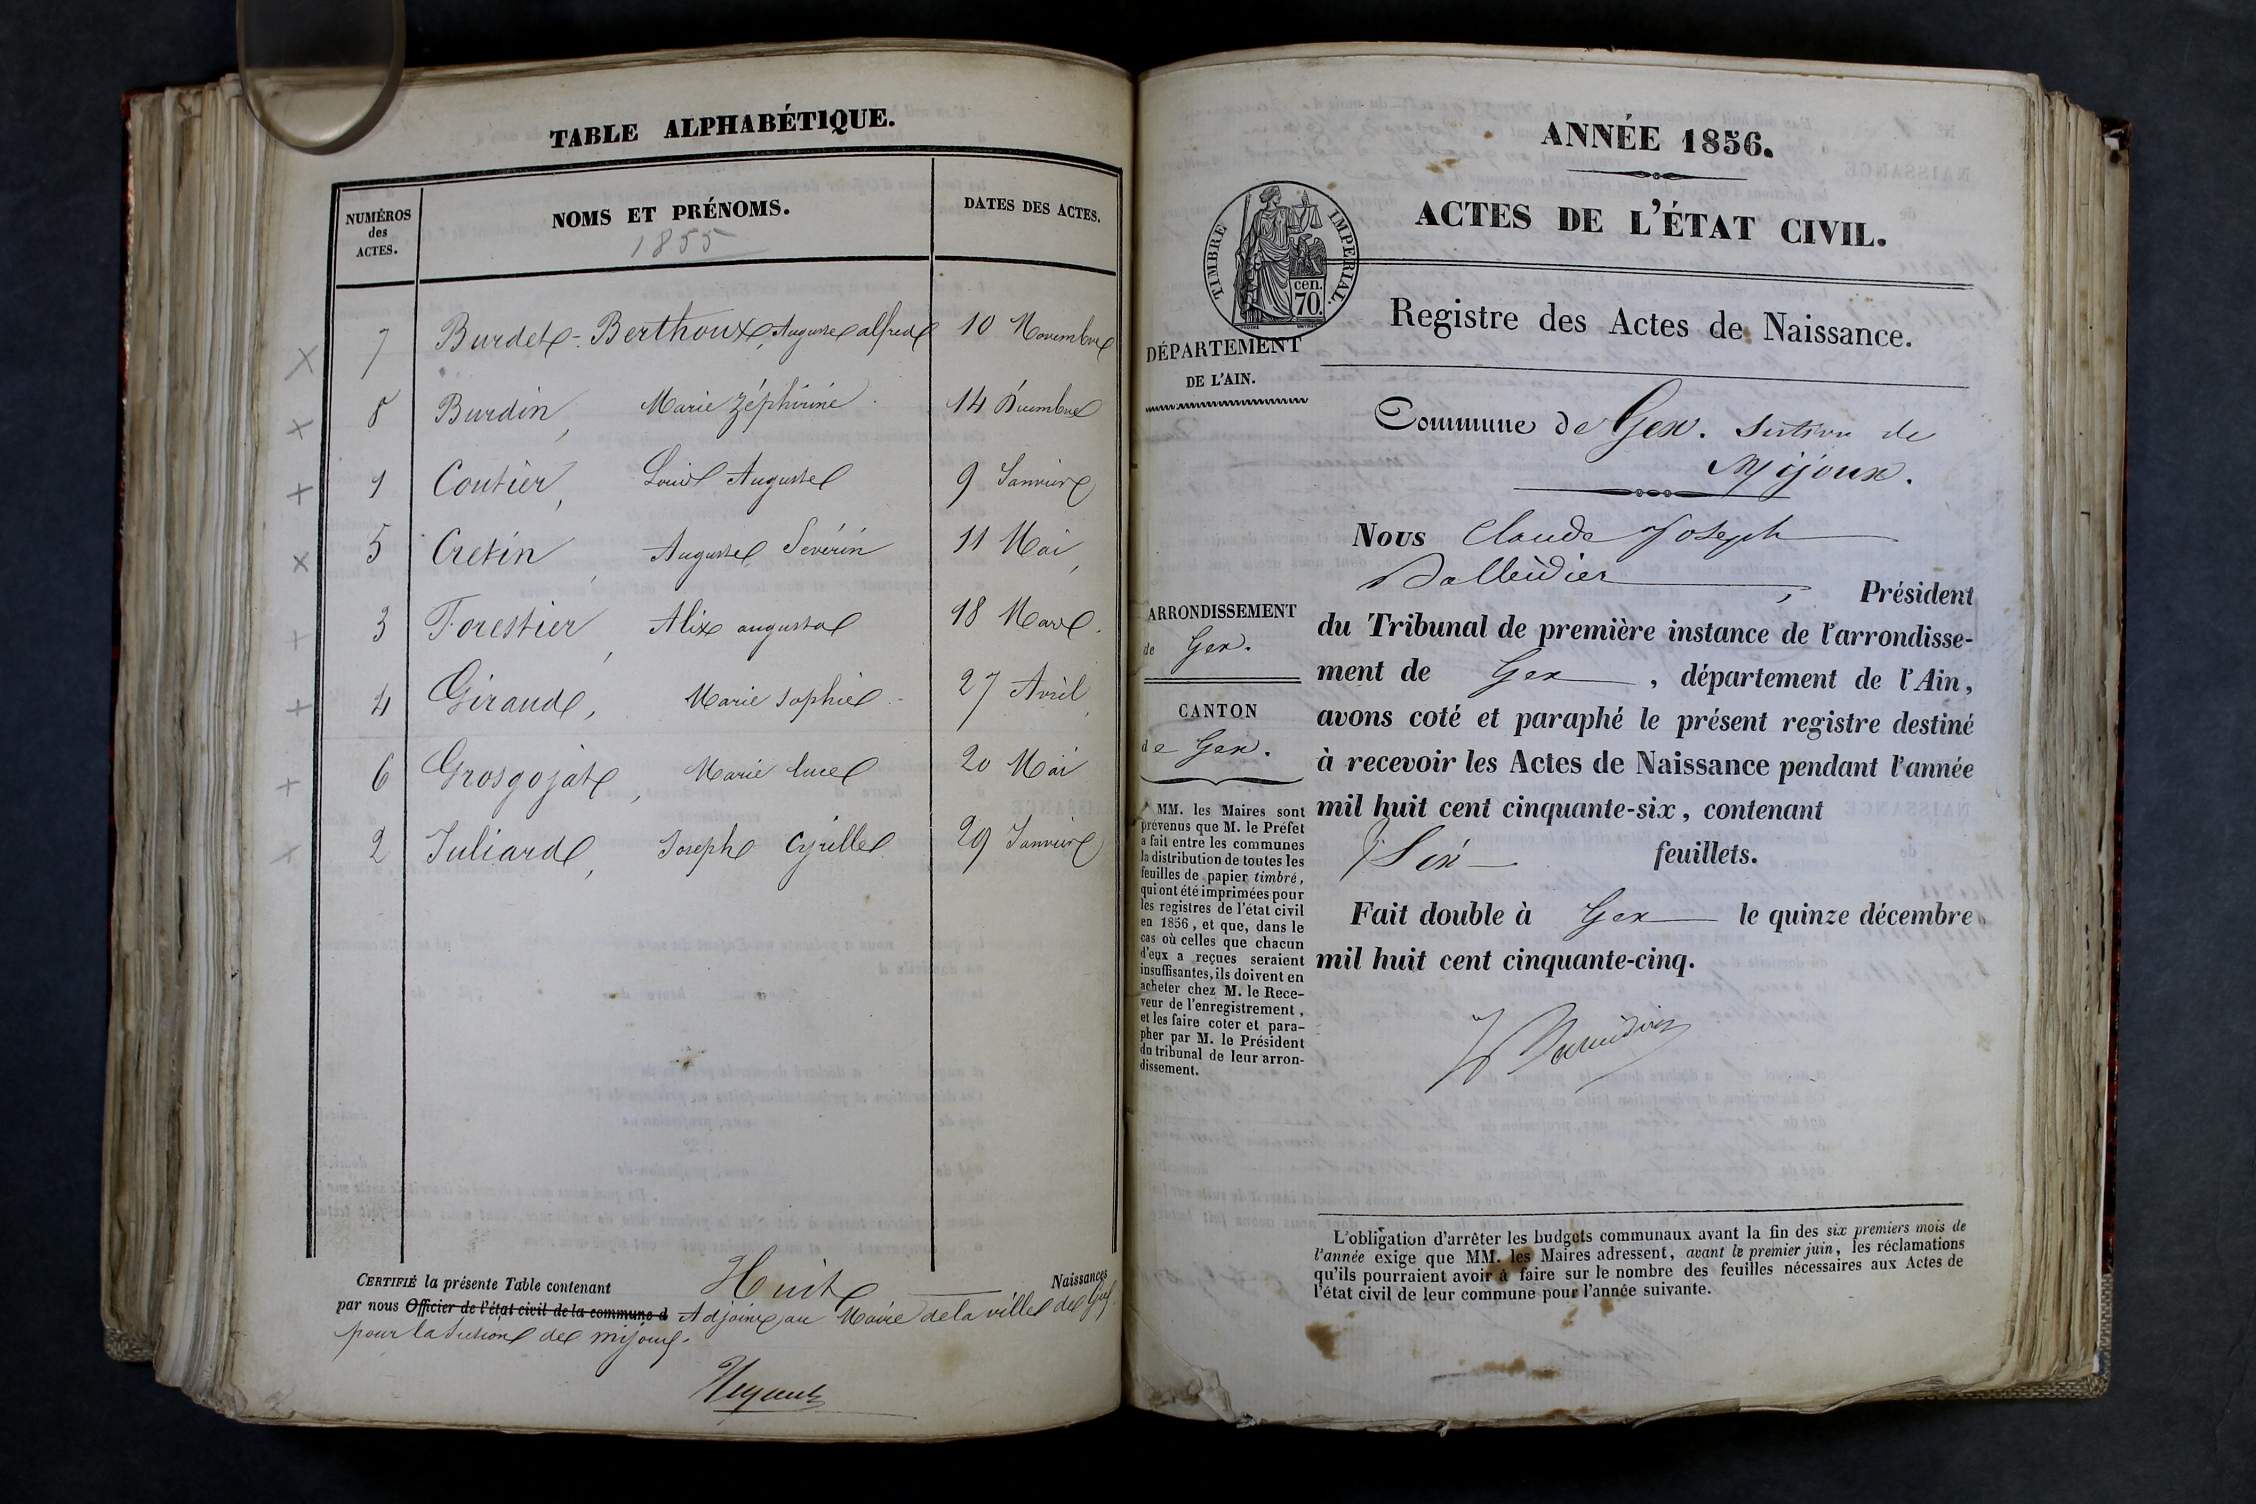 TABLE ALPHABÉTIQUE.
NUMÉROS
des
ACTES.
NOMS ET PRÉNOMS.
1855
DATES DES ACTES.
7 Burdet-Berthoux, Auguste alfred 10 Novembre
8 Burdin, Marie Zéphirine 14 Décembre
1 Coutier, Louis Auguste 9 Janvier
5 Cretin, Auguste Sévérin 11 Mai,
3 Forestier, Alix augusta 18 Mars.
4 Giraud, Marie Sophie 27 Avril,
6 Grosgojat, Marie luce 20 Mai
2 Juliard, Joseph Cyrille 29 Janvier
CERTIFIÉ la présente Table contenant Huit Naissances
par nous Officier de l'état civil de la commune d Adjoint au Maire de la ville de Gex
pour la Section de mijoux.
ANNÉE 1856.
ACTES DE L'ÉTAT CIVIL.
TIMBRE IMPERIAL.
cen.
70.
Registre des Actes de Naissance.
DÉPARTEMENT
DE L'AIN.
Commune de Gex. Section de
Mijoux.
Nous Claude Joseph
, Président
du Tribunal de première instance de l'arrondisse-
ment de Gex, département de l'Ain,
avons coté et paraphé le présent registre destiné
à recevoir les Actes de Naissance pendant l'année
mil huit cent cinquante-six, contenant
Six feuillets.
Fait double à Gex le quinze décembre
mil huit cent cinquante-cinq.
ARRONDISSEMENT
de Gex.
CANTON
de Gex.
MM. les Maires sont
prévenus que M. le Préfet
a fait entre les communes
la distribution de toutes les
feuilles de papier timbré,
qui ont été imprimées pour
les registres de l'état civil
en 1856, et que, dans le
cas où celles que chacun
d'eux a reçues seraient
insuffisantes, ils doivent en
acheter chez M. le Rece-
veur de l'enregistrement,
et les faire coter et para-
pher par M. le Président
du tribunal de leur arron-
dissement.
L'obligation d'arrêter les budgets communaux avant la fin des six premiers mois de
l'année exige que MM. les Maires adressent, avant le premier juin, les réclamations
qu'ils pourraient avoir à faire sur le nombre des feuilles nécessaires aux Actes de
l'état civil de leur commune pour l'année suivante.